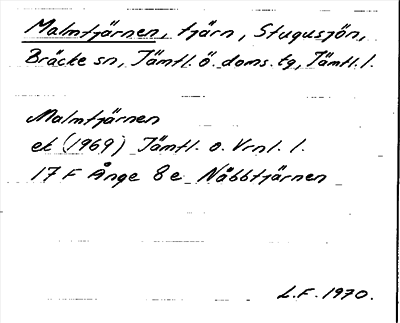 Malmtjärnen, tjärn, Stugusjön,
Bräcke sn, Jämtl. ö. doms. tg, Jämtl. l.
Malmtjärnen
ek (1969) Jämtl. o. Vrnl. l.
17 F Ånge 8 e Nåbbtjärnen
L.F. 1970.